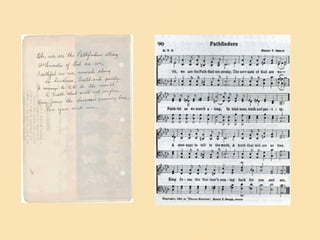 Oh, we are the Pathfinders strong
The servants of God we are
Faithful as we march along
In kindness, truth and purity.
A message to tell to the world
A truth that will set us free
King Jesus the Saviour's coming back
For you and me.
90
Pathfinders
H. T. B.
Henry T. Bergh
Oh, we are the Path-find-ers strong, The serv-ants of God are we;
Faith-ful as we march a - long, In kind-ness, truth and pur - i - ty.
A mes-sage to tell to the world, A truth that will set us free,
King Je-sus the Sav-ior's com-ing back for you and me.